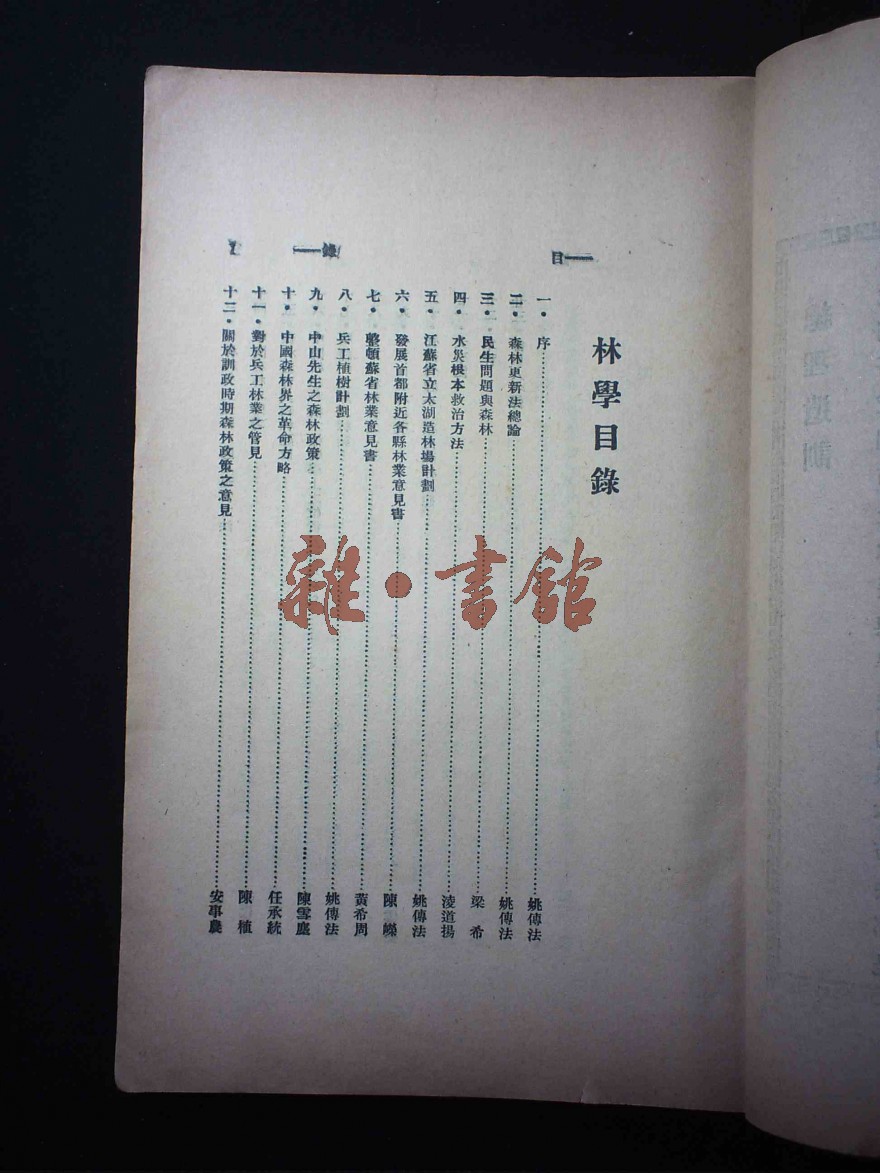 目——
——錄
1
林學目錄
一・序……姚傳法
二・森林更新法總論……姚傳法
三・民生問題與森林……梁希
四・水災根本救治方法……淩道揚
五・江蘇省立太湖造林場計劃……姚傳法
六・發展首都附近各縣林業意見書……陳嶸
七・整頓蘇省林業意見書……黃希周
八・兵工植樹計劃……姚傳法
九・中山先生之森林政策……陳雪
十・中國森林界之革命方略……任承統
十一・對於兵工林業之管見……陳植
十二・關於訓政時期森林政策之意見……安事農
雜・書館